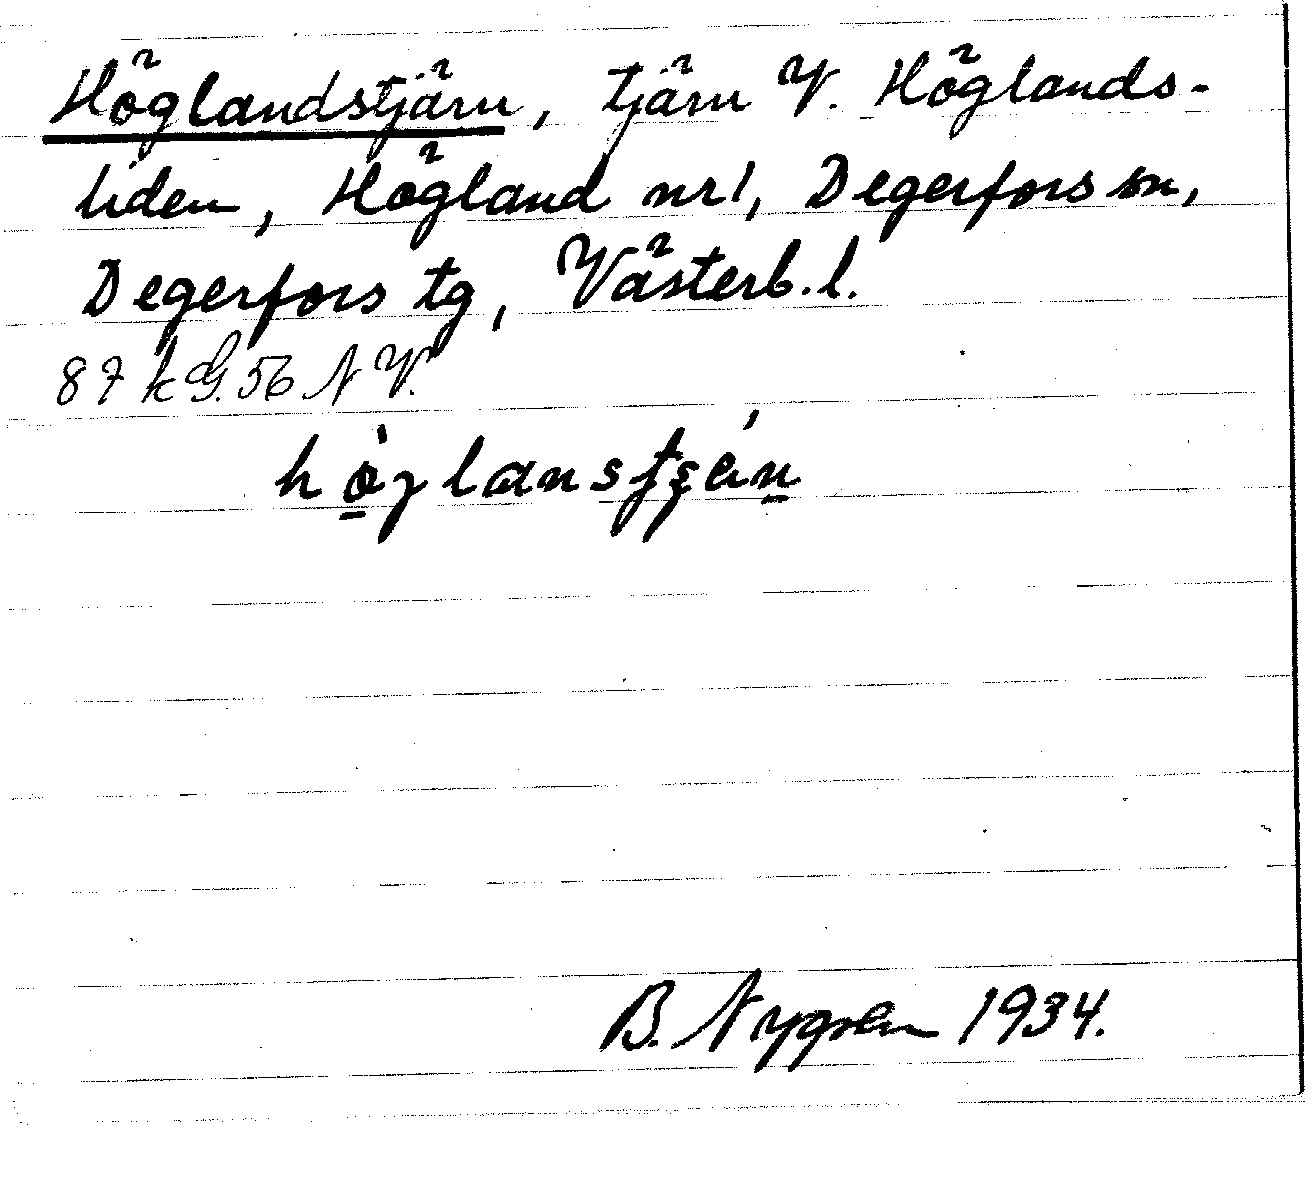 Höglandstjärn, tjärn V. Höglands-
liden, Högland nr 1, Degerfors sn,
Degerfors tg, Västerb. l.
87 k G. 56 N V.
B. Nygren 1934.